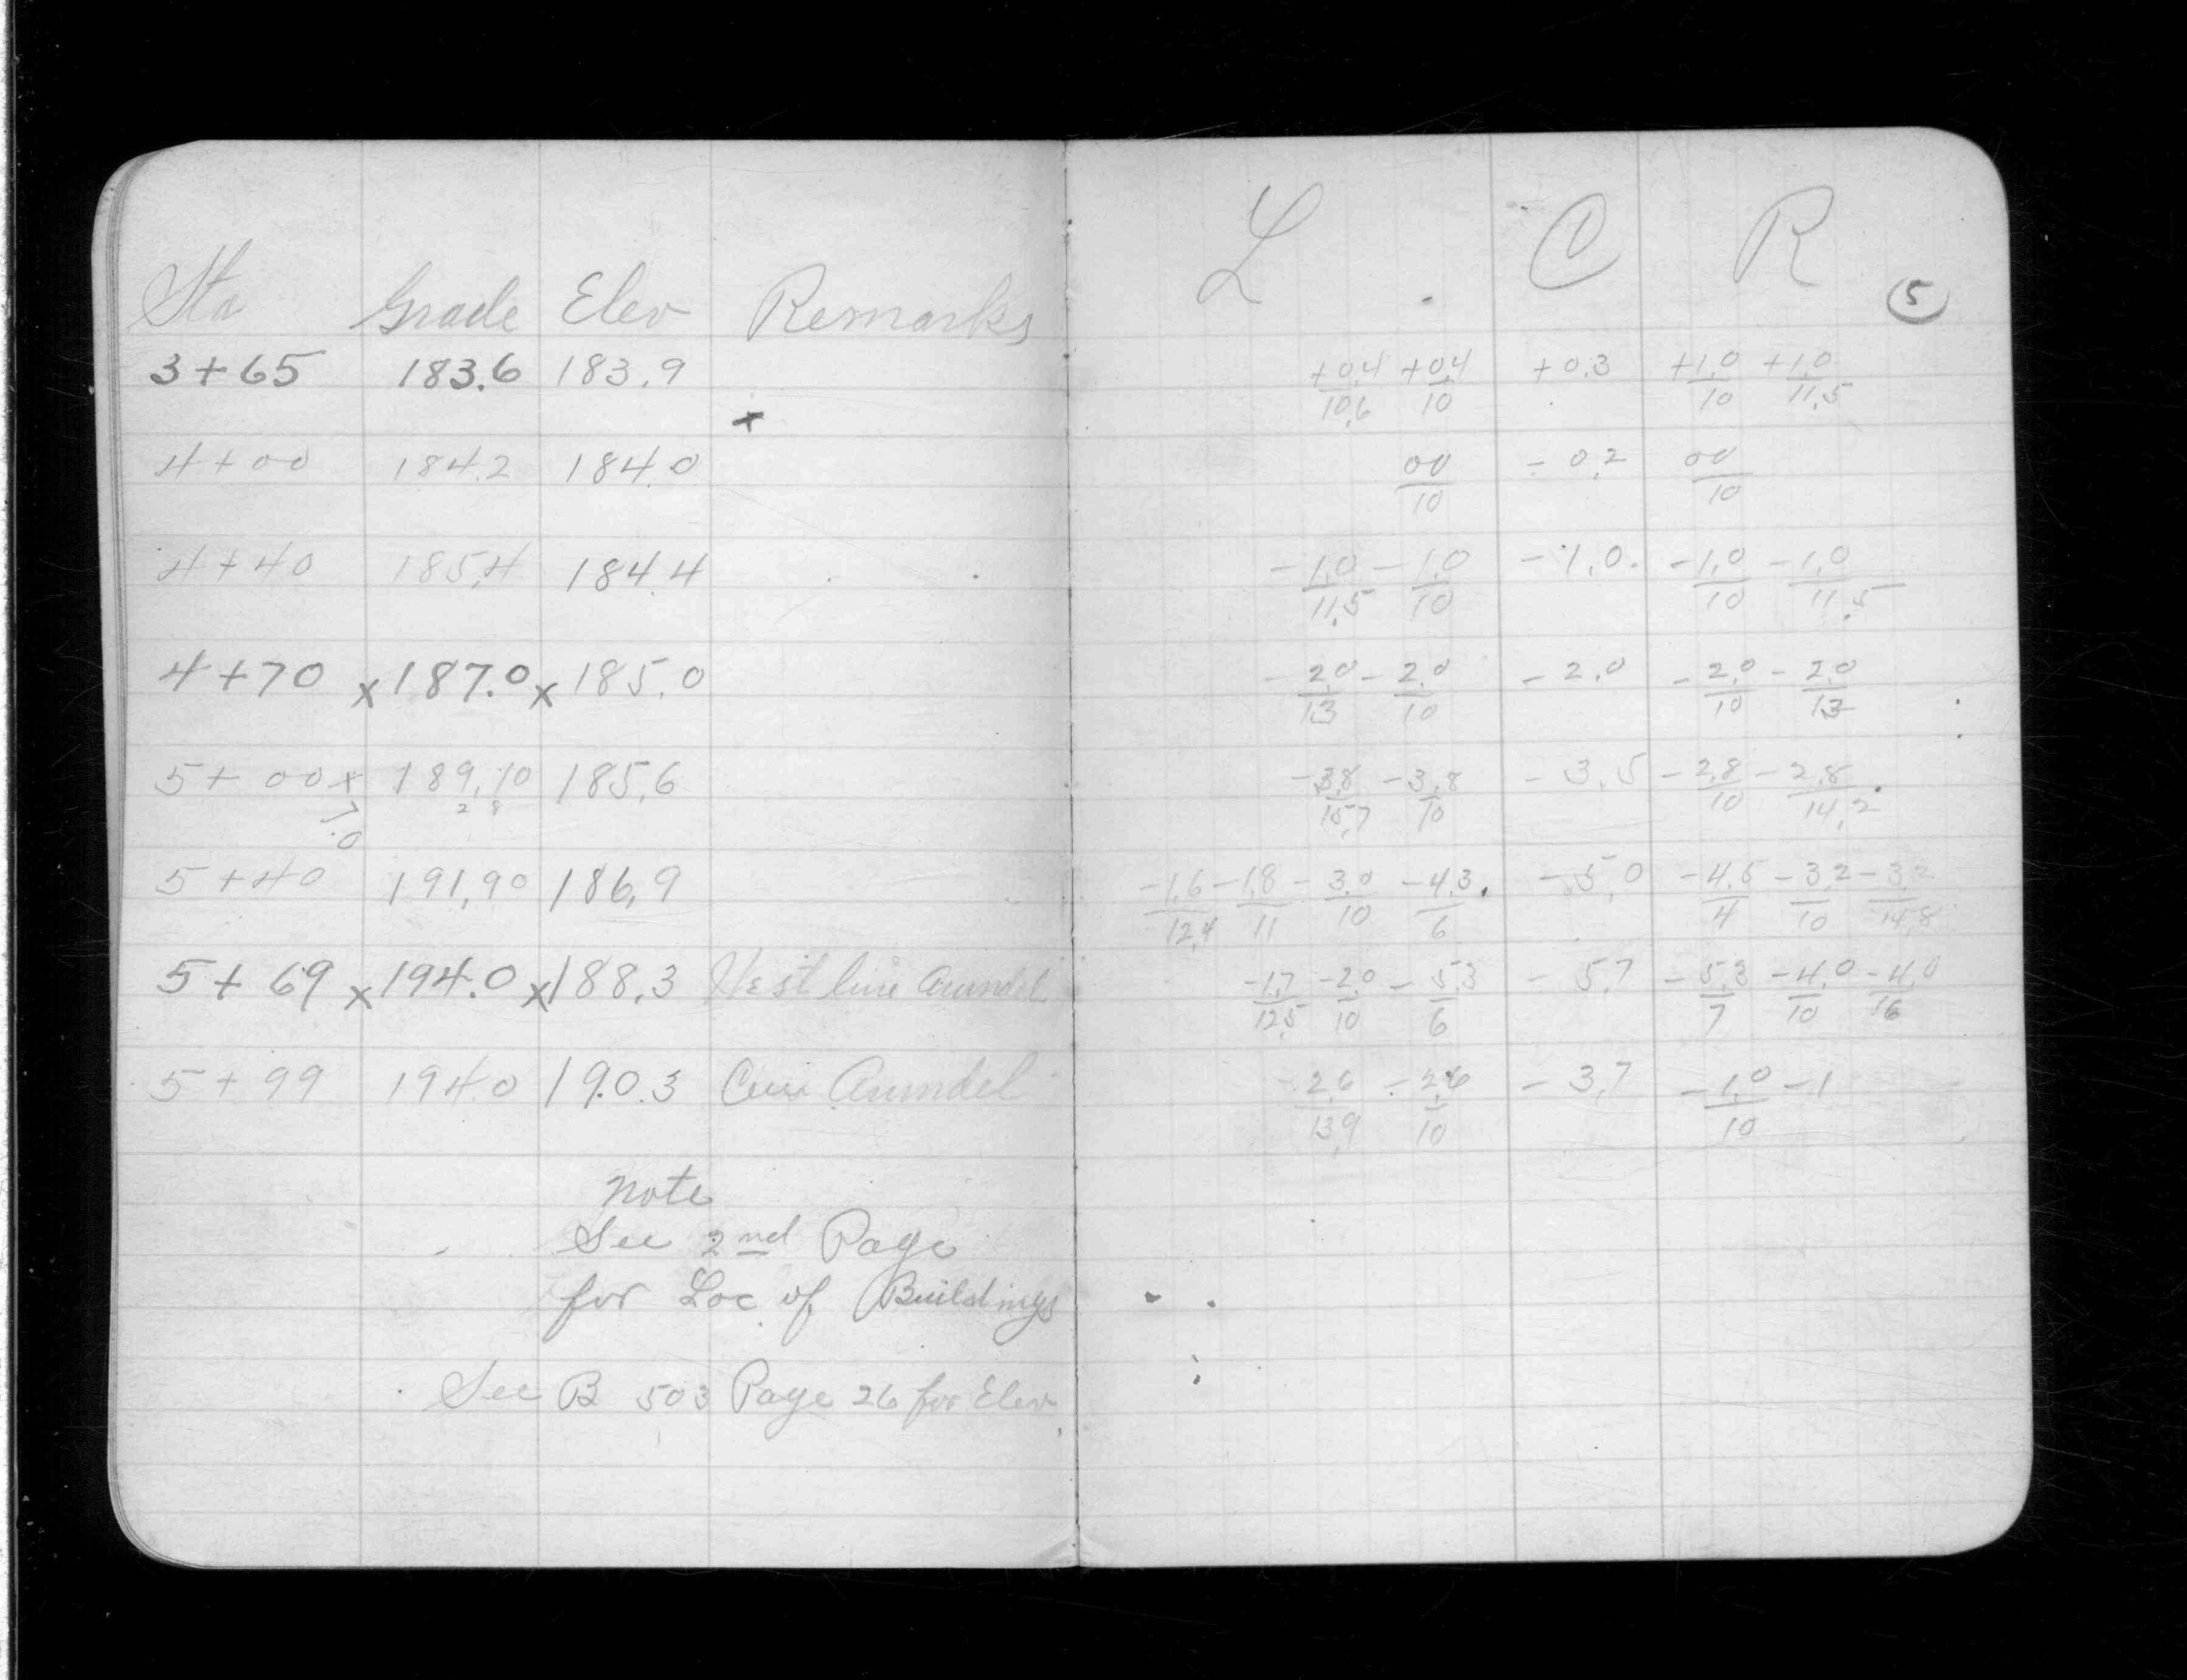 Sta Grade Elev Remarks
3+65 183.6 183.9
+
4+00 184.2 184.0
4+40 185.4 184.4
4+70 x 187.0 x 185.0
5+00 x 189.10 185.6
2 8
7.0
5+40 191.90 186.9
5+69 x 194.0 x 188.3 West line Arundel
5+99 194.0 190.3 Cen Arundel
Note
See 2nd Page
for Loc of Buildings
See B 503 Page 26 for Elev
L C R
5
+0.4/10.6 +0.4/10 +0.3 +1.0/10 +1.0/11.5
00/10 -0.2 00/10
-1.0/11.5 -1.0/10 -1.0 -1.0/10 -1.0/11.5
-2.0/13 -2.0/10 -2.0 -2.0/10 -2.0/13
-3.8/15.7 -3.8/10 -3.5 -2.8/10 -2.8/14.2
-1.6/12.4 -1.8/11 -3.0/10 -4.3/6 -5.0 -4.5/4 -3.2/10 -3.2/14.8
-1.7/12.5 -2.0/10 -5.3/6 -5.7 -5.3/7 -4.0/10 -4.0/16
-2.6/13.9 -2.6/10 -3.7 -1.0/10 -1